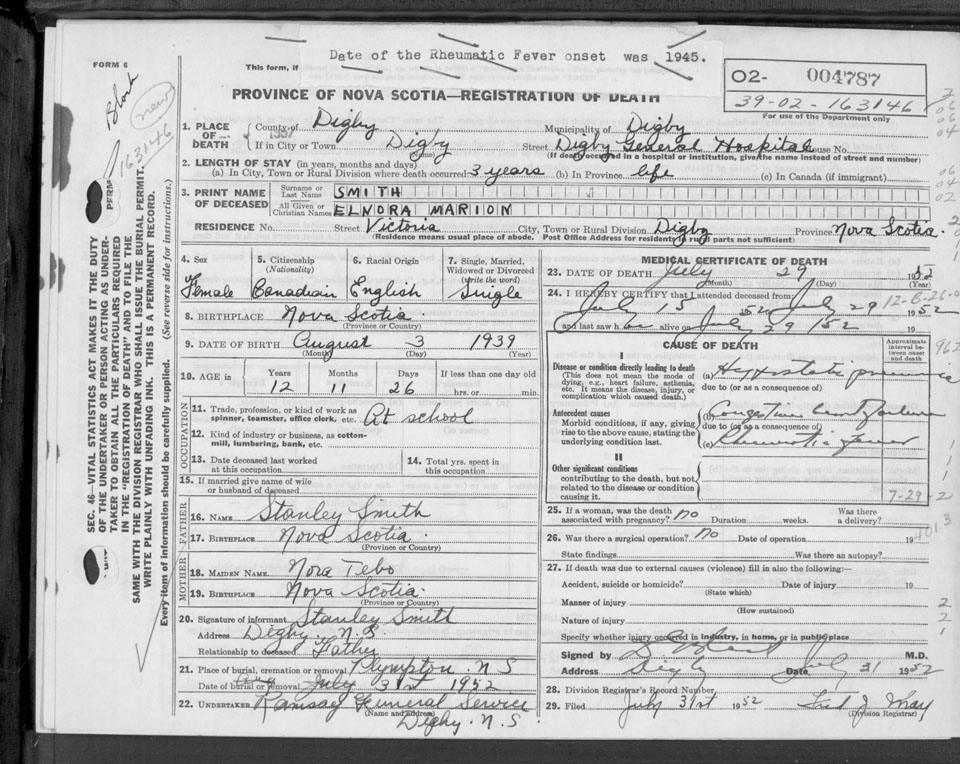 Date of the Rheumatic Fever onset was 1945.
FORM 6
This form, if
O2- 004787
39-02-163146
For use of the Department only
PROVINCE OF NOVA SCOTIA—REGISTRATION OF DEATH
1. PLACE OF DEATH
County of Digby Municipality of Digby
If in City or Town Digby (Name) Street Digby General Hospital House No.
(If death occurred in a hospital or institution, give the name instead of street and number)
2. LENGTH OF STAY (in years, months and days)
(a) In City, Town or Rural Division where death occurred 3 years (b) In Province life (c) In Canada (if immigrant)
3. PRINT NAME OF DECEASED
Surname or Last Name SMITH
All Given or Christian Names ELNORA MARION
RESIDENCE No. Street Victoria City, Town or Rural Division Digby Province Nova Scotia.
(Residence means usual place of abode. Post Office Address for residents of rural parts not sufficient)
4. Sex Female
5. Citizenship (Nationality) Canadian
6. Racial Origin English
7. Single, Married, Widowed or Divorced (write the word) Single
8. BIRTHPLACE Nova Scotia.
(Province or Country)
9. DATE OF BIRTH August 3 1939
(Month) (Day) (Year)
10. AGE in Years Months Days If less than one day old
12 11 26 hrs. or min.
OCCUPATION
11. Trade, profession, or kind of work as spinner, teamster, office clerk, etc. At school
12. Kind of industry or business, as cotton-mill, lumbering, bank, etc.
13. Date deceased last worked at this occupation
14. Total yrs. spent in this occupation
15. If married give name of wife or husband of deceased
FATHER
16. NAME Stanley Smith
17. BIRTHPLACE Nova Scotia.
(Province or Country)
MOTHER
18. MAIDEN NAME Nora Tebo
19. BIRTHPLACE Nova Scotia.
(Province or Country)
20. Signature of informant Stanley Smith
Address Digby. N.S.
Relationship to deceased Father
21. Place of burial, cremation or removal Plympton. N S
Date of burial or removal July 31st 1952
22. UNDERTAKER Ramsay Funeral Service
(Name and address)
Digby. N.S.
MEDICAL CERTIFICATE OF DEATH
23. DATE OF DEATH July 29 1952
(Month) (Day) (Year)
24. I HEREBY CERTIFY that I attended deceased from:
July 15 1952 July 29 1952
and last saw her alive on July 29 152 19
CAUSE OF DEATH
Approximate interval between onset and death
I
Disease or condition directly leading to death
(This does not mean the mode of dying, e.g., heart failure, asthenia, etc. It means the disease, injury, or complication which caused death.)
(a) Hypostatic pneumonia
due to (or as a consequence of)
Antecedent causes
Morbid conditions, if any, giving rise to the above cause, stating the underlying condition last.
(b) Congestive heart failure
due to (or as a consequence of)
(c) Rheumatic fever
II
Other significant conditions
contributing to the death, but not related to the disease or condition causing it.
7-29-2
25. If a woman, was the death associated with pregnancy? no Duration weeks. Was there a delivery?
26. Was there a surgical operation? no Date of operation 19
State findings Was there an autopsy?
27. If death was due to external causes (violence) fill in also the following:—
Accident, suicide or homicide? Date of injury 19
(State which)
Manner of injury
(How sustained)
Nature of injury
Specify whether injury occurred in industry, in home, or in public place
Signed by M.D.
Address Digby Date July 31 1952
28. Division Registrar's Record Number
29. Filed July 31st 1952 Fred J May
(Division Registrar)
SEC. 46—VITAL STATISTICS ACT MAKES IT THE DUTY
OF THE UNDERTAKER OR PERSON ACTING AS UNDER-
TAKER TO OBTAIN ALL THE PARTICULARS REQUIRED
IN THE "REGISTRATION OF DEATH" AND TO FILE THE
SAME WITH THE DIVISION REGISTRAR WHO SHALL ISSUE THE BURIAL PERMIT.
WRITE PLAINLY WITH UNFADING INK. THIS IS A PERMANENT RECORD.
Every item of information should be carefully supplied. (See reverse side for instructions.)
163146